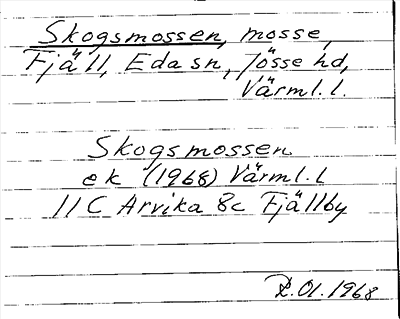 Skogsmossen, mosse,
Fjäll, Eda sn, Jösse hd,
Värml. l.
Skogsmossen
ek (1968) Värml. l
11 C Arvika 8c Fjällby
R.Ol. 1968